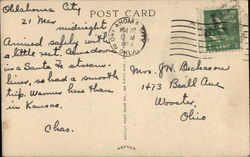 Oklahoma City
21 Mar
midnight
POST CARD
Arrived safely with
a little rest. Came down
in a Santa Fe stream-
liner, so had a smooth
trip. Warmer here than
in Kansas.
Chas.
OKLAHOMA CITY
OKLA.
Mrs. J.H. Dickason
1473 Beall Ave
Wooster,
Ohio